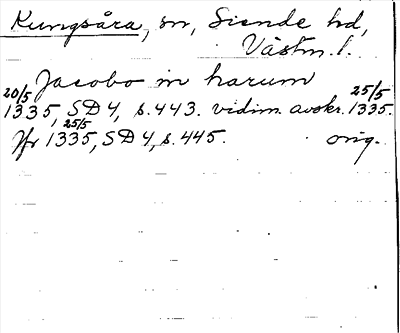 Kungsåra, sn, Siende hd,
Västm. l.
Jacobo in harum
20/5 1335, SD 4, s. 443. vidim. avskr. 25/5 1335.
Jfr 25/5 1335, SD 4, s. 445. orig.